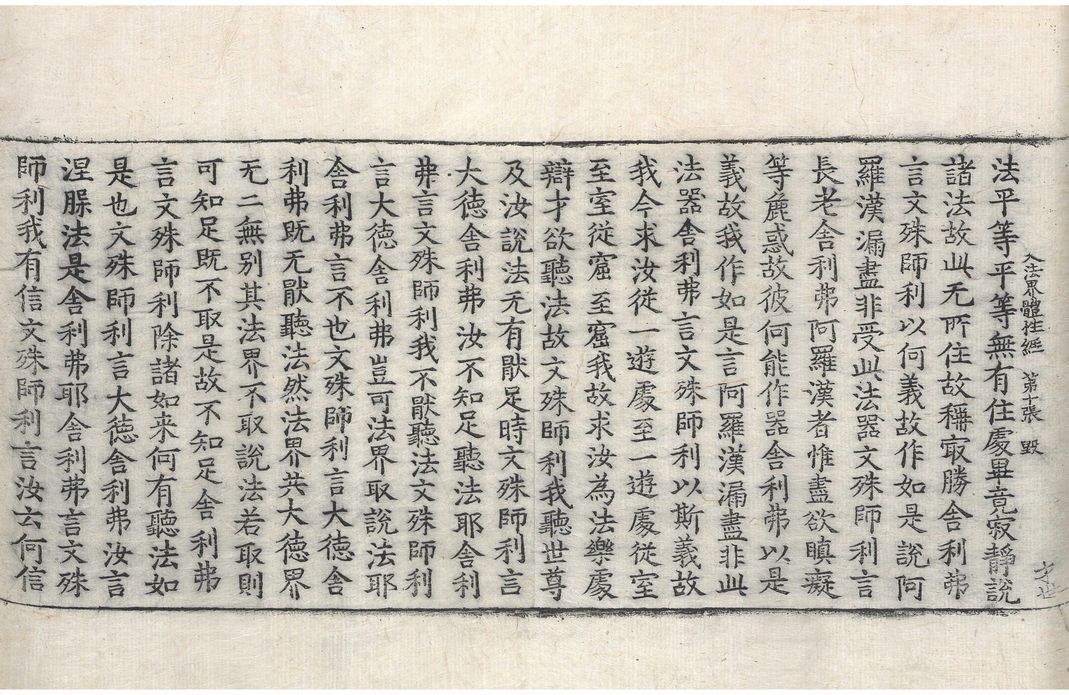 入法界體性經 第十張 毀
法平等平等無有住處畢竟寂靜說
諸法故此无所住故稱㝡勝舍利弗
言文殊師利以何義故作如是說阿
羅漢漏盡非受此法器文殊師利言
長老舍利弗阿羅漢者惟盡欲瞋癡
等麁惑故彼何能作器舍利弗以是
義故我作如是言阿羅漢漏盡非此
法器舍利弗言文殊師利以斯義故
我今求汝從一遊處至一遊處從室
至室從窟至窟我故求汝為法樂處
辯才欲聽法故文殊師利我聽世尊
及汝說法无有猒足時文殊師利言
大德舍利弗汝不知足聽法耶舍利
弗言文殊師利我不猒聽法文殊師利
言大德舍利弗豈可法界取說法耶
舍利弗言不也文殊師利言大德舍
利弗旣无猒聽法然法界共大德界
无二無別其法界不取說法若取則
可知足旣不取是故不知足舍利弗
言文殊師利除諸如来何有聽法如
是也文殊師利言大德舍利弗汝言
涅槃法是舍利弗耶舍利弗言文殊
師利我有信文殊師利言汝云何信